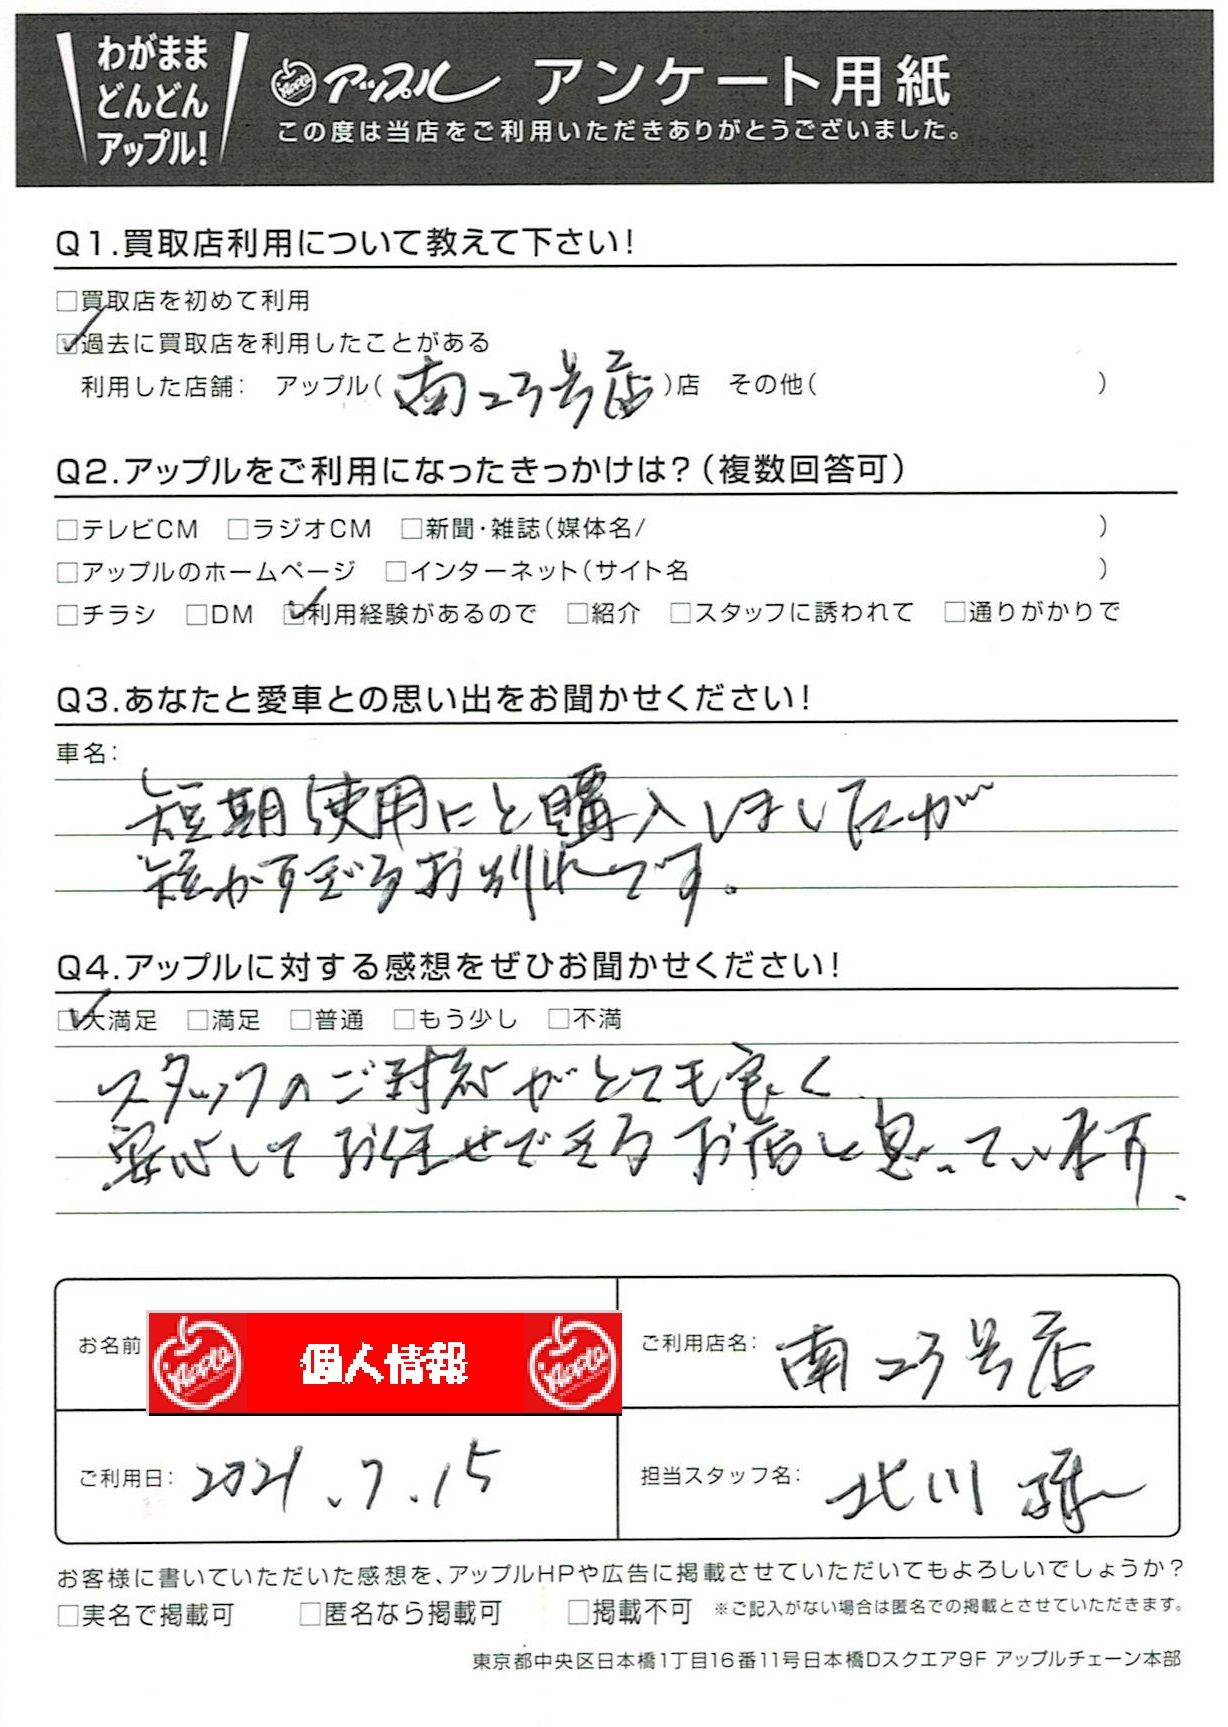 わがまま
どんどん
アップル!
Apple アップル アンケート用紙
この度は当店をご利用いただきありがとうございました。
Q1.買取店利用について教えて下さい!
□買取店を初めて利用
☑過去に買取店を利用したことがある
利用した店舗: アップル(南23号店)店 その他( )
Q2.アップルをご利用になったきっかけは?(複数回答可)
□テレビCM □ラジオCM □新聞・雑誌(媒体名/ )
□アップルのホームページ □インターネット(サイト名 )
□チラシ □DM ☑利用経験があるので □紹介 □スタッフに誘われて □通りがかりで
Q3.あなたと愛車との思い出をお聞かせください!
車名:
短期使用にと購入しましたが
短かすぎるお別れです。
Q4.アップルに対する感想をぜひお聞かせください!
☑大満足 □満足 □普通 □もう少し □不満
スタッフのご対応がとても良く
安心してお任せできるお店と思っています、
お名前 Apple 個人情報 Apple
ご利用店名: 南23号店
ご利用日: 2021.7.15
担当スタッフ名: 北川
お客様に書いていただいた感想を、アップルHPや広告に掲載させていただいてもよろしいでしょうか?
□実名で掲載可 □匿名なら掲載可 □掲載不可 ※ご記入がない場合は匿名での掲載とさせていただきます。
東京都中央区日本橋1丁目16番11号日本橋Dスクエア9F アップルチェーン本部